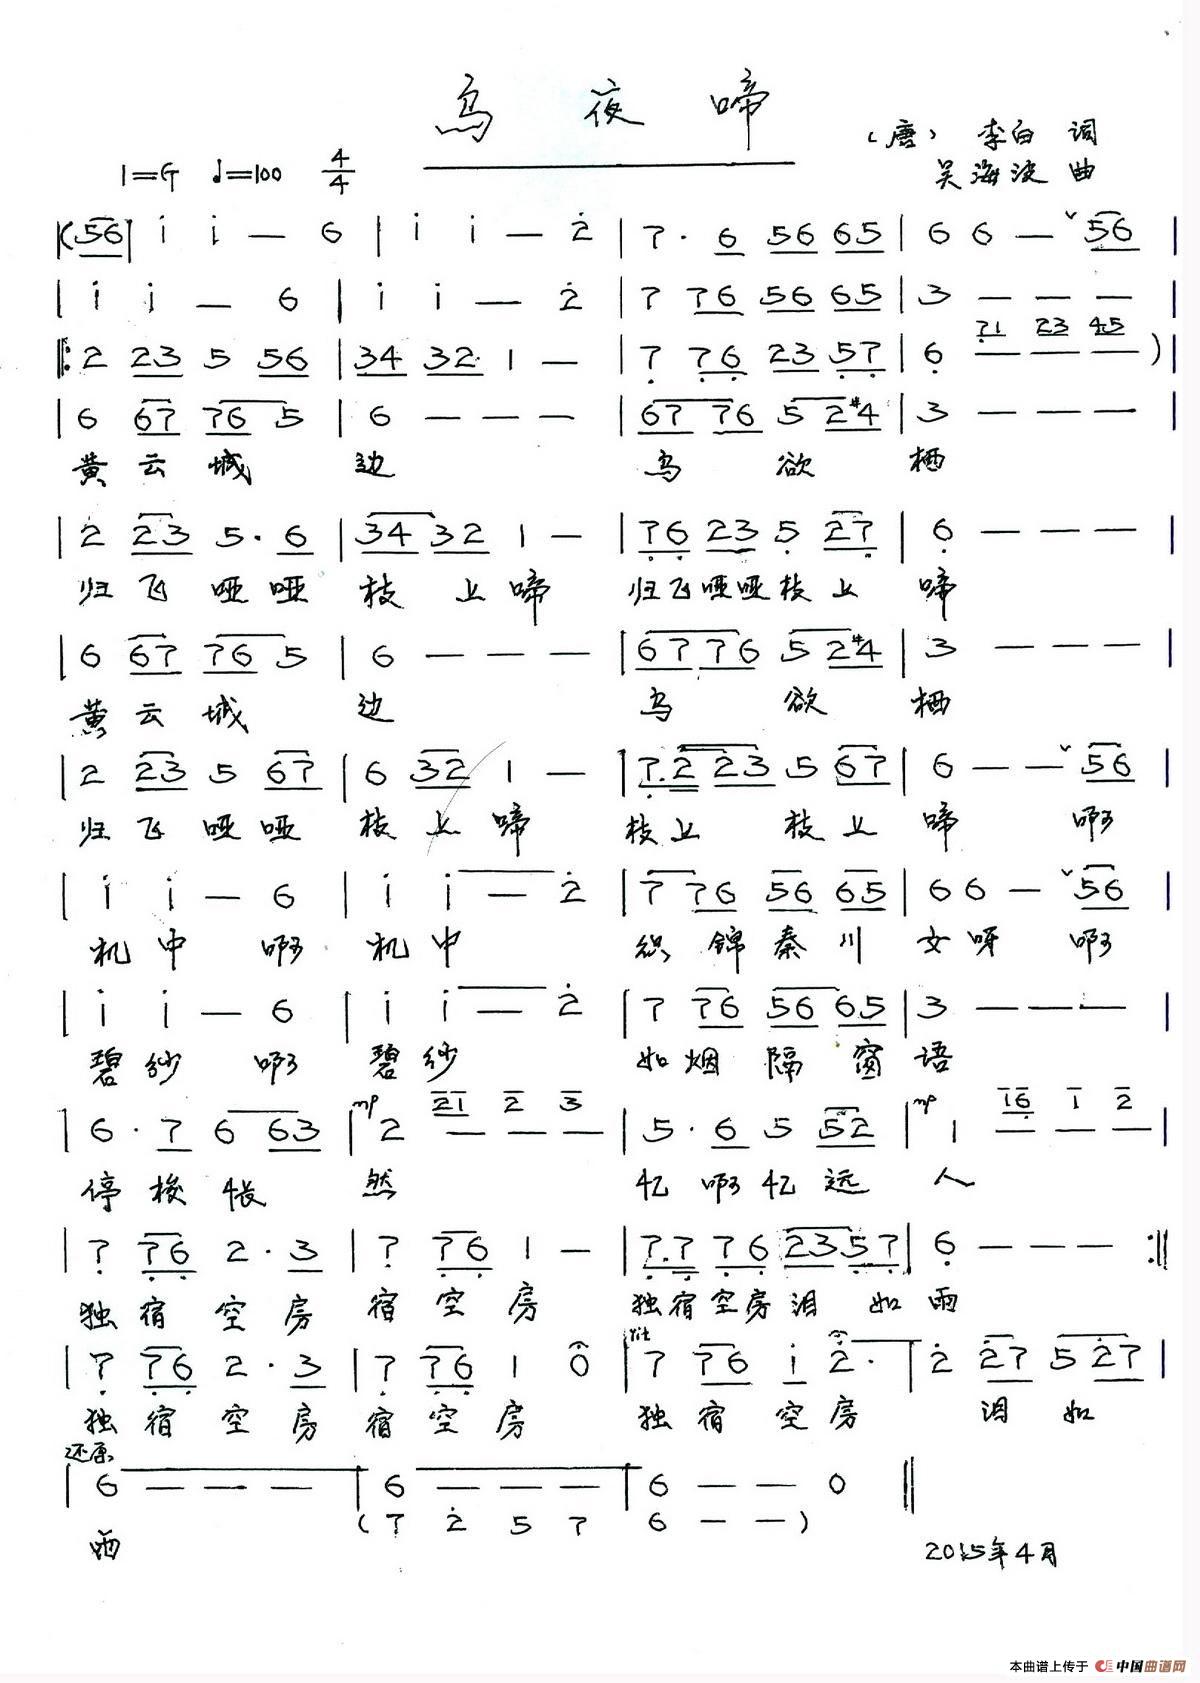 乌夜啼
(唐) 李白 词
吴海波 曲
1=G ♩=100 4/4
|(56| i i — 6 | i i — 2̇ | 7· 6 56 65 | 6 6 — ˅56 |
| i i — 6 | i i — 2̇ | 7 76 56 65 | 3 — — — |
71 23 45
‖: 2 23 5 56 | 34 32· 1 — | 7̣ 7̣6̣ 23 5̣7̣ | 6̣ — — — ) |
| 6 67 76 5 | 6 — — — | 67 76 5 2#4 | 3 — — — |
黄云城 边 乌 欲 栖
| 2 23 5· 6 | 34 32 1 — | 7̣6̣ 23 5̣ 27̣ | 6̣ — — — |
归飞哑哑 枝上啼 归飞哑哑枝上 啼
| 6 67 76 5 | 6 — — — | 67 76 5 2#4 | 3 — — — |
黄云城 边 乌 欲 栖
| 2 23 5 67 | 6 32 1 — | 7̣·2 23 5 67 | 6 — — ˅56 |
归飞哑哑 枝上啼 枝上 枝上 啼 啊
| i i — 6 | i i — 2̇ | 7 76 56 65 | 6 6 — ˅56 |
机中 啊 机中 织锦秦川 女呀 啊
| i i — 6 | i i — 2̇ | 7 76 56 65 | 3 — — — |
碧纱 啊 碧纱 如烟隔窗 语
mp 21 2 3 mp 16 1 2
| 6· 7 6 63 | 2 — — — | 5· 6 5 52 | 1 — — — |
停梭怅 然 忆啊忆远 人
| 7̣ 7̣6̣ 2· 3 | 7̣ 7̣6̣ 1 — | 7̣·7̣ 7̣6̣ 23 5̣7̣ | 6̣ — — — :‖
独宿空房 宿空房 独宿空房泪 如雨
rit
| 7̣ 7̣6̣ 2· 3 | 7̣ 7̣6̣ 1 0 | 7 76 i 2̇· | 2̇ 2̇7 5 2̇7 |
独宿空房 宿空房 独宿空房 泪 如
还原
| 6 — — — | 6 — — — | 6 — — 0 ‖
(7 2̇ 5 7 6 — —)
雨
2015年4月
本曲谱上传于 中国曲谱网